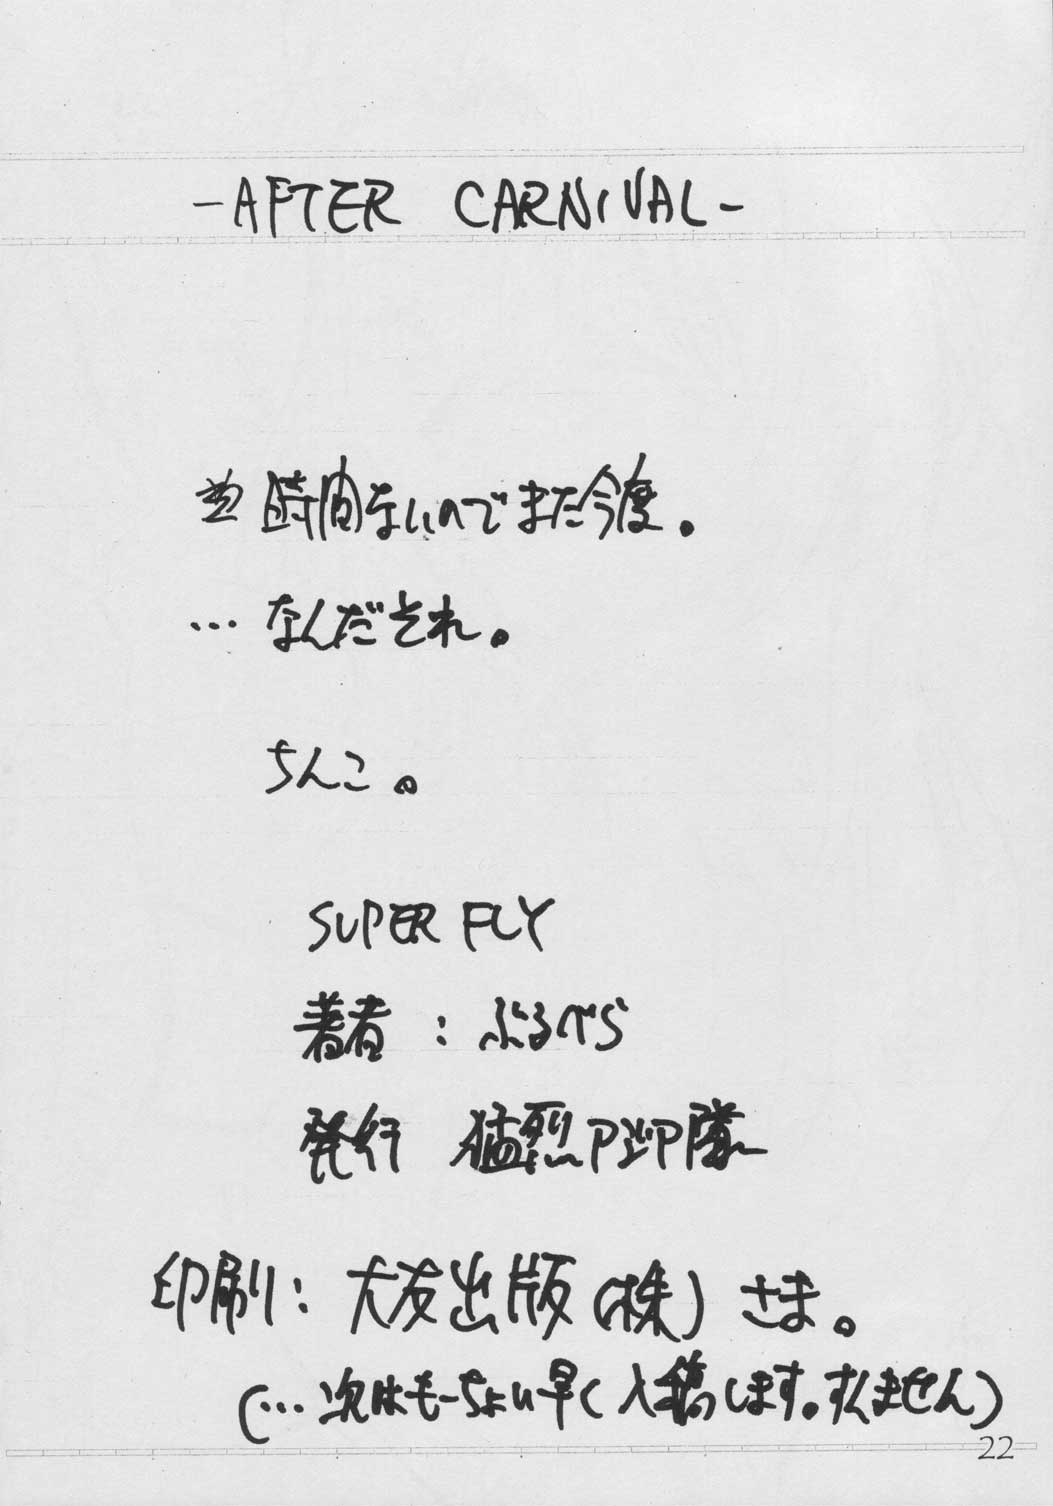 -AFTER CARNIVAL-
時間ないのでまた今度。
… なんだそれ。
ちんこ。
SUPER FLY
著者 : ぶるべら
発行 猛烈PユP隊
印刷: 大友出版(株)さま。
(… 次はもーちょい早く入稿します。すんません)
22